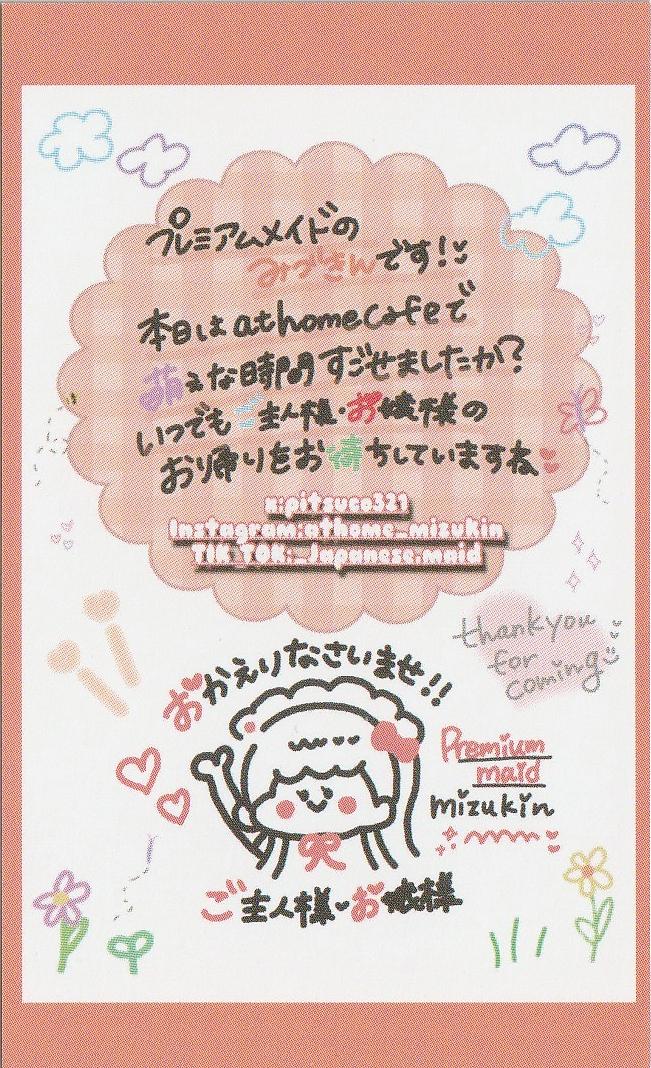 プレミアムメイドの
みづきんです!
本日はathomecafeで
萌えな時間すごせましたか?
いつでもご主人様・お嬢様の
お帰りをお待ちしていますね
x:pitsuco321
Instagram:athome_mizukin
TIK_TOK:_Japanese.maid
thankyou
for
coming
おかえりなさいませ!!
Premium
maid
mizukin
ご主人様・お嬢様